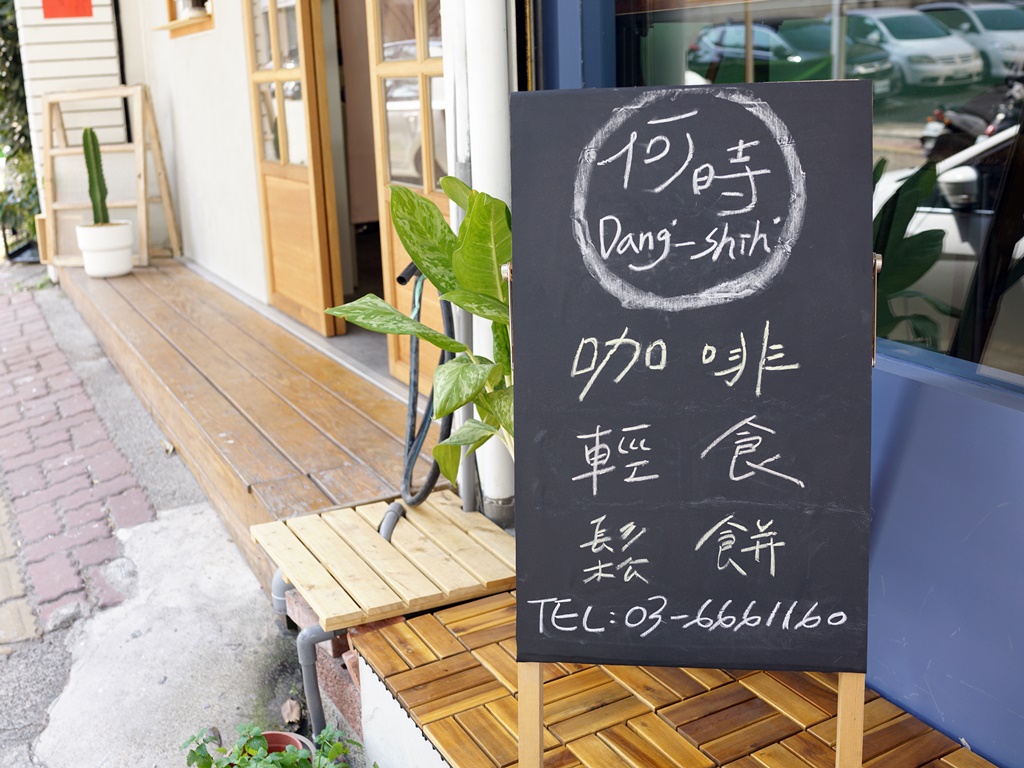 何時
Dang-shih
咖啡
輕食
鬆餅
TEL:03-6661160